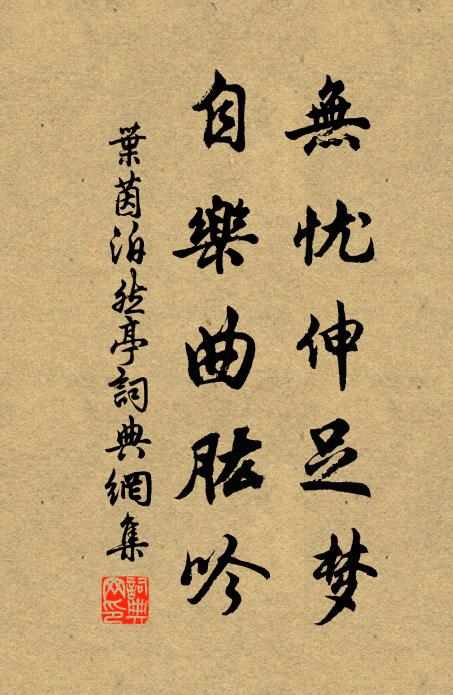 無忧伸足梦
自樂曲肱吟
葉茵泊然亭詞典網集
詞典网印